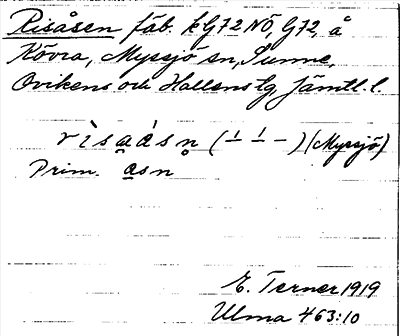 Risåsen fäb. k G72 NÖ, G72, å
Kövra, Myssjö sn, Sunne,
Ovikens och Hallens tg Jämtl. l.
rìsa̱ásn̥ (–́ –́ –) (Myssjö)
Prim. a̱sn
E. Terner 1919
Ulma 463:10